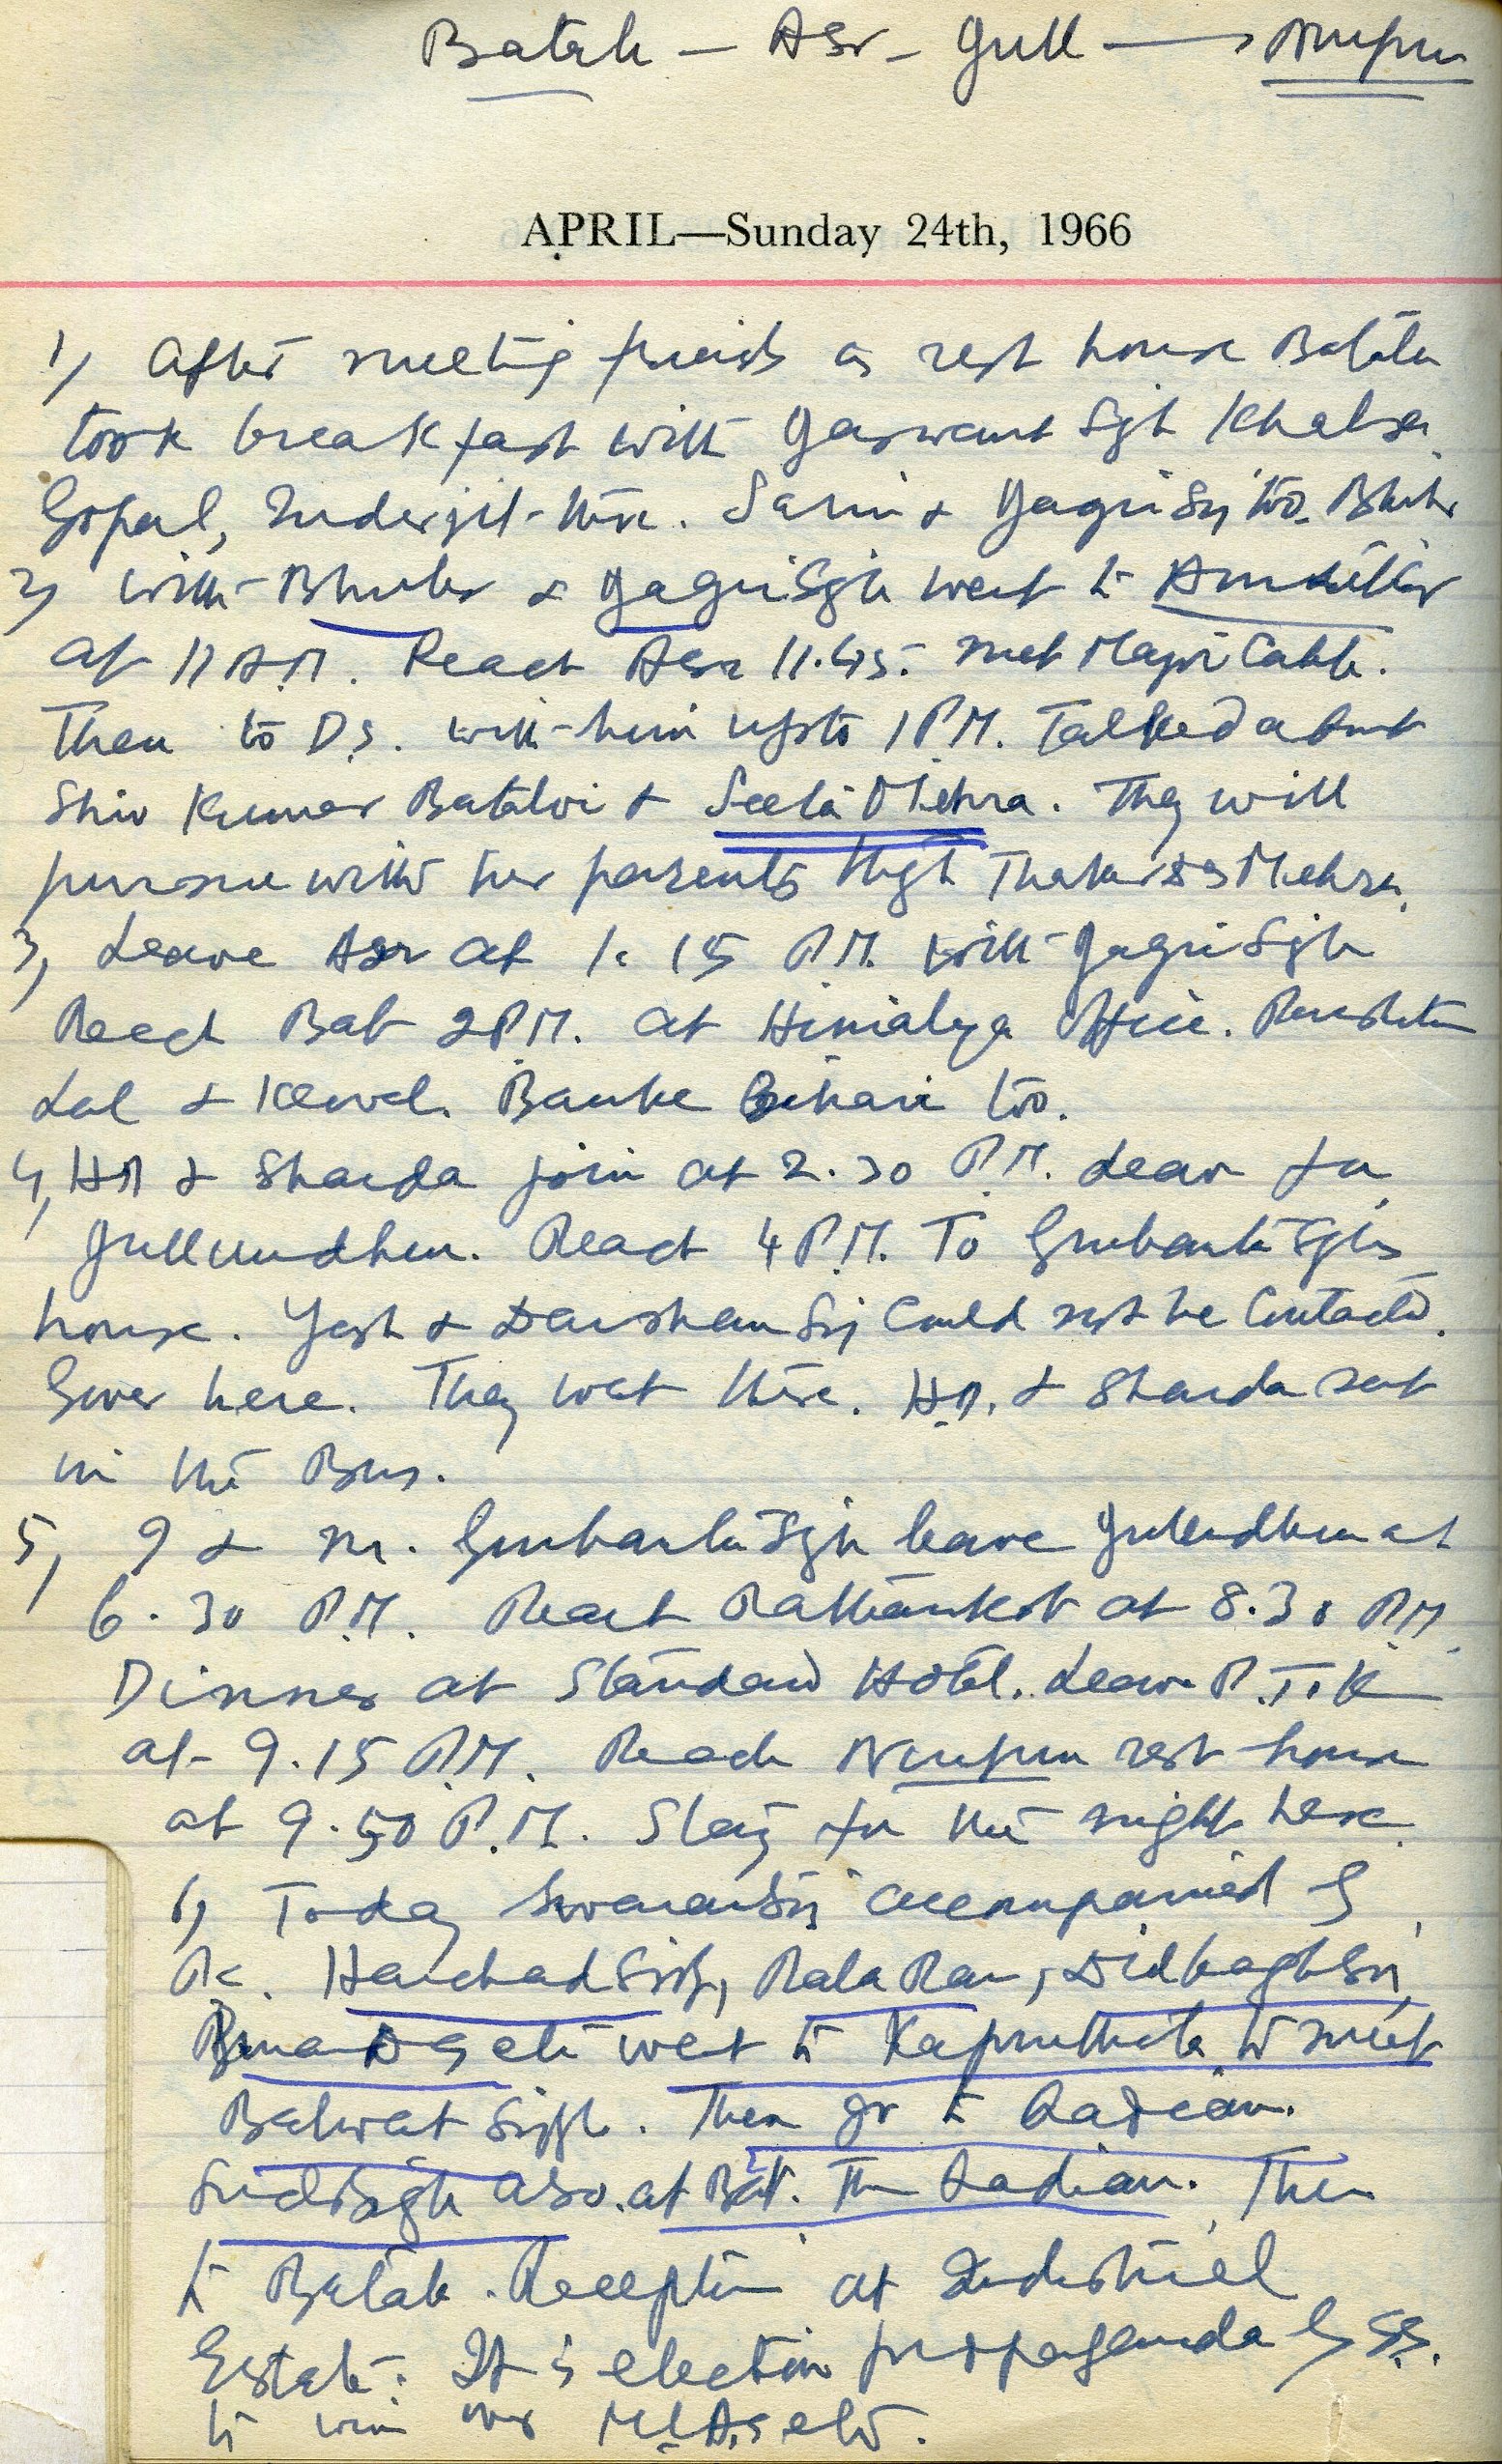 Batala — Asr — Jull ⟶ Nurpur
APRIL—Sunday 24th, 1966
1) After meeting friends at rest house Batala
took breakfast with Jaswant Sgh Khalsa.
Gopal, Inderjit there. Sarin & Jagir Sgh too. Bhuler
2) With Bhuler & Jagir Sgh went to Amritsar
at 11 A.M. Reach Asr 11.45. met Major
Then to D.S. with him upto 1 P.M. Talked about
Shiv Kumar Batalvi & Seeta Mehra. They will
pursue with her parents thgh Thakurdas Mehra.
3, Leave Asr at 1.15 P.M. with Jagir Sgh
Reach Bat 2 P.M. at Himalya Office. Purshotam
Lal & Kewal. Banke Bihari too.
4, HR & Sharda join at 2.30 P.M. Leave for
Jullundhur. Reach 4 P.M. To Gurbanta Sghs
house. Yash & Darshan Sgh could not be contacted.
here. They went there. HR. & Sharda sent
in the Bus.
5, I & Mr. Gurbanta Sgh leave Jullundhur at
6.30 P.M. Reach Pathankot at 8.30 P.M.
Dinner at Standard Hotel. Leave P.T.K
at 9.15 P.M. Reach Nurpur rest house
at 9.50 P.M. Stay for the night here.
6, Today Swaran Sgh accompanied by
Harchad Singh, Rala Ram, Dilbagh Sgh,
etc went to Kapurthala to meet
Balwat Singh. Then go to Qadian.
also. at Bat. Then Qadian. Then
to Batala. Reception at Industrial
Estate. It is election propaganda by SS.
to win over M.L.As etc.